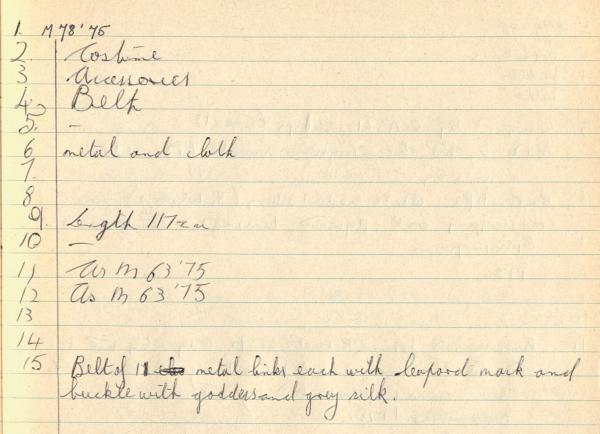 1. M 78'75
2. Costume
3 Accessories
4 Belt
5. -
6 metal and cloth
7.
8
9. Length 117cm
10 —
11 As M 63'75
12 As M 63'75
13
14
15 Belt of 11 metal links each with leopard mask and
buckle with goddess and grey silk.